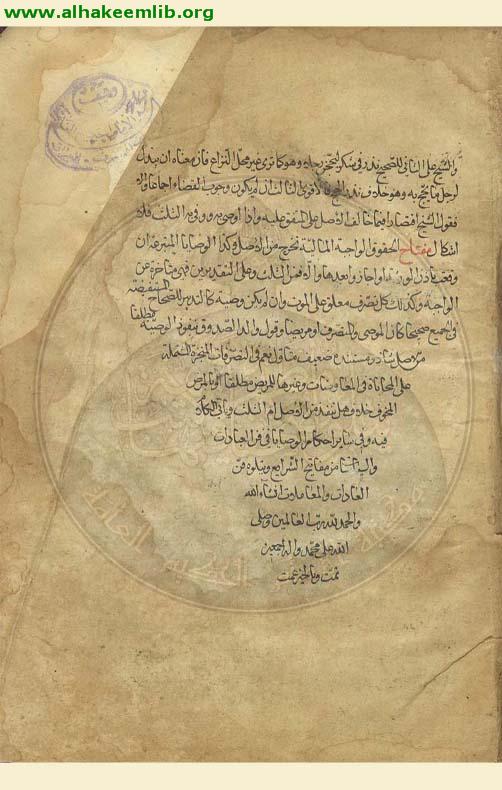 www.alhakeemlib.org
والشيخ على الثاني للصحيح بنذر في شكر ليتحجن رجلا وهو كما ترى غير محل النزاع فان معناه ان يبذل
لرجل ما يحج به وهو خلاف نذر الحج فالاقوى الثالث ان لم يكن وجوب القضاء اجماعيا والا
فقول الشيخ اقتصارا فيما خالف الاصل على المتفق عليه واذا اوصى به ووفى به الثلث فلا
اشكال مفتاح الحقوق الواجبة المالية تخرج من الاصل وكذا الوصايا المتبرع بها ان
وقعت باذن الورثة او اجازوا بعدها والا فمن الثلث وعلى التقديرين فهي متأخرة عن
الواجبة وكذلك كل تصرف معلق على الموت وان لم يكن وصية كالتدبير للصحاح المستفيضة
في الجميع صحيحا كان الموصي والمتصرف او مريضا وقول والد الصدوق بنفوذ الوصية مطلقا
من الاصل شاذ ومستنده ضعيف متأول نعم في التصرفات المنجزة المشتملة
على المحاباة في المعاوضات وغيرها للمريض مطلقا او بالمرض
المخوف خلاف هل تنفذ من الاصل ام الثلث ويأتي الكلام
فيه وفي سائر احكام الوصايا في فن العبادات
والسياسات من مفاتيح الشرايع ويتلوه فن
العادات والمعاملات انشاء الله
والحمد لله رب العالمين وصلى
الله على محمد واله اجمعين
تمت وبالخير عمت